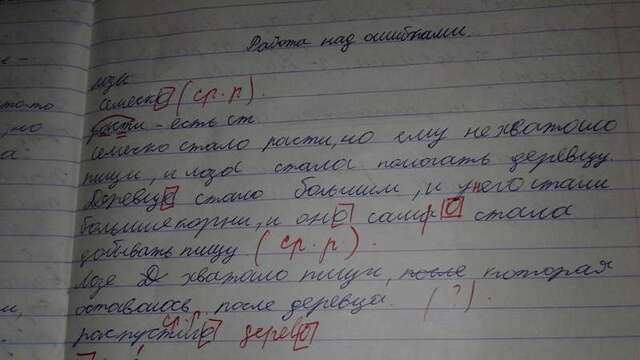 Работа над ошибками.
лозы
семечко (ср.р).
расти - есть ст.
семечко стало расти, но ему не хватало
пищи, и лоза стала помогать деревцу.
Деревце стало большим, и у него стали
большие корни, и оно само стала
добывать пищу (ср.р).
Лозе хватало пищи, после которая
оставалось после деревца. (?).
ср.р
распустило дерево